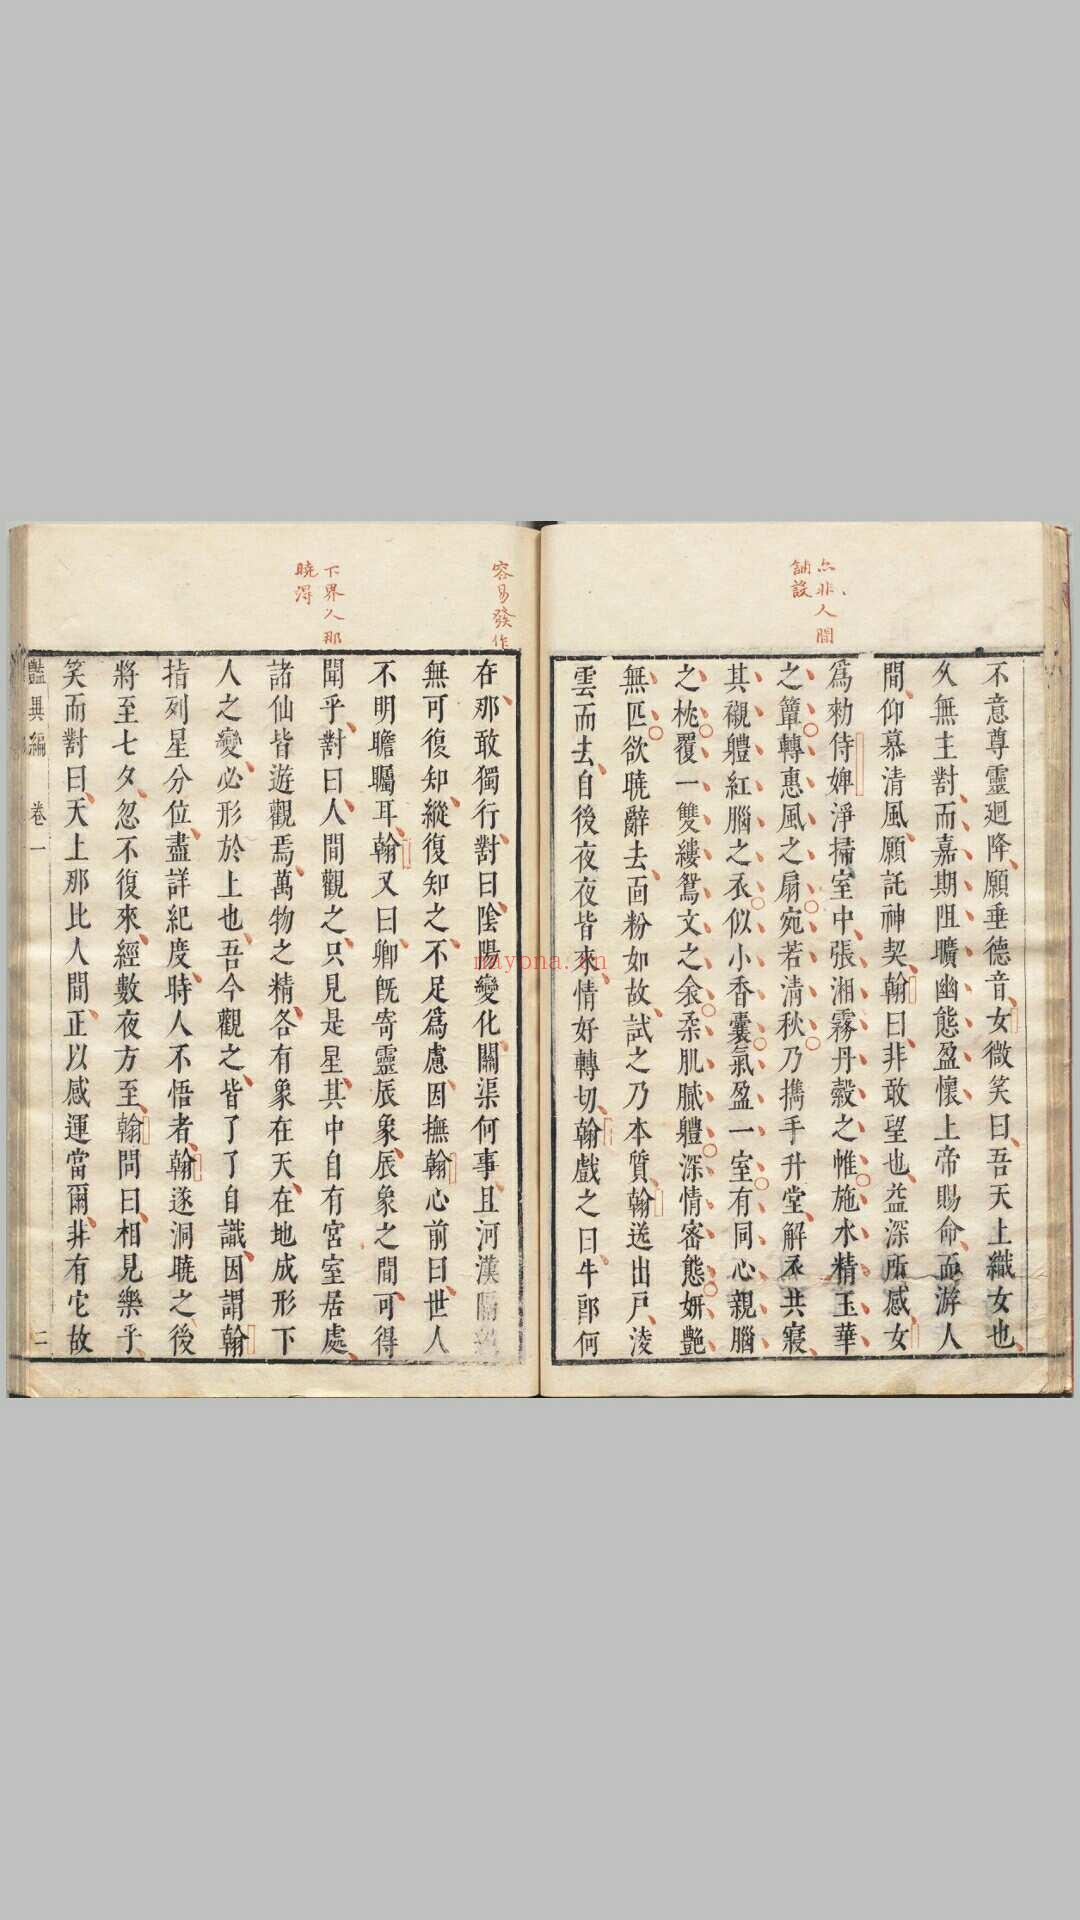 亦非人間
鋪設
不意尊靈迴降願垂德音女微笑曰吾天上織女也
久無主對而嘉期阻曠幽態盈懷上帝賜命而游人
間仰慕清風願託神契翰曰非敢望也益深所感女
爲勑侍婢淨掃室中張湘霧丹縠之帷施水精玉華
之簟轉惠風之扇宛若清秋乃擕手升堂解衣共寢
其襯軆紅腦之衣似小香囊氣盈一室有同心親腦
之枕覆一雙縷鴛文之衾柔肌膩軆深情密態妍艶
無匹欲曉辭去面粉如故試之乃本質翰送出戶淩
雲而去自後夜夜皆來情好轉切翰戲之曰牛郎何
容易發作
下界人那
曉得
在那敢獨行對曰陰陽變化關渠何事且河漢隔絕
無可復知縱復知之不足爲慮因撫翰心前曰世人
不明瞻矚耳翰又曰卿旣寄靈辰象辰象之間可得
聞乎對曰人間觀之只見是星其中自有宮室居處
諸仙皆遊觀焉萬物之精各有象在天在地成形下
人之變必形於上也吾今觀之皆了了自識因謂翰
指列星分位盡詳紀度時人不悟者翰遂洞曉之後
將至七夕忽不復來經數夜方至翰問曰相見樂乎
笑而對曰天上那比人間正以感運當爾非有它故
豔異編 卷一 二
nayona.cn